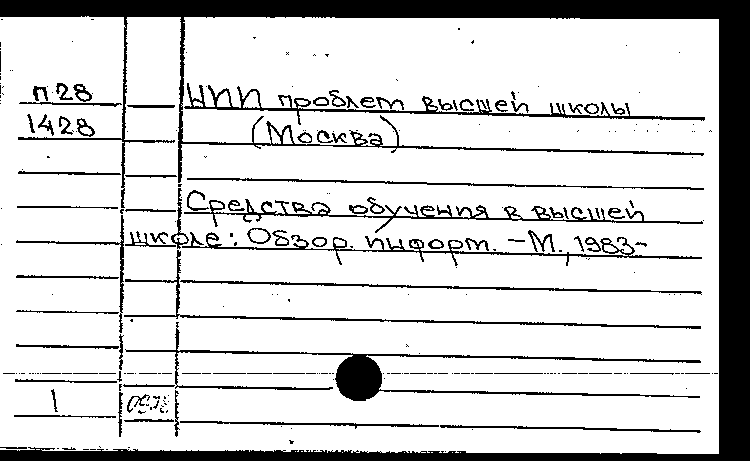 п28
НИИ проблем высшей школы
1428
(Москва)
Средства обучения в высшей
школе: Обзор. информ. – М., 1983–
1